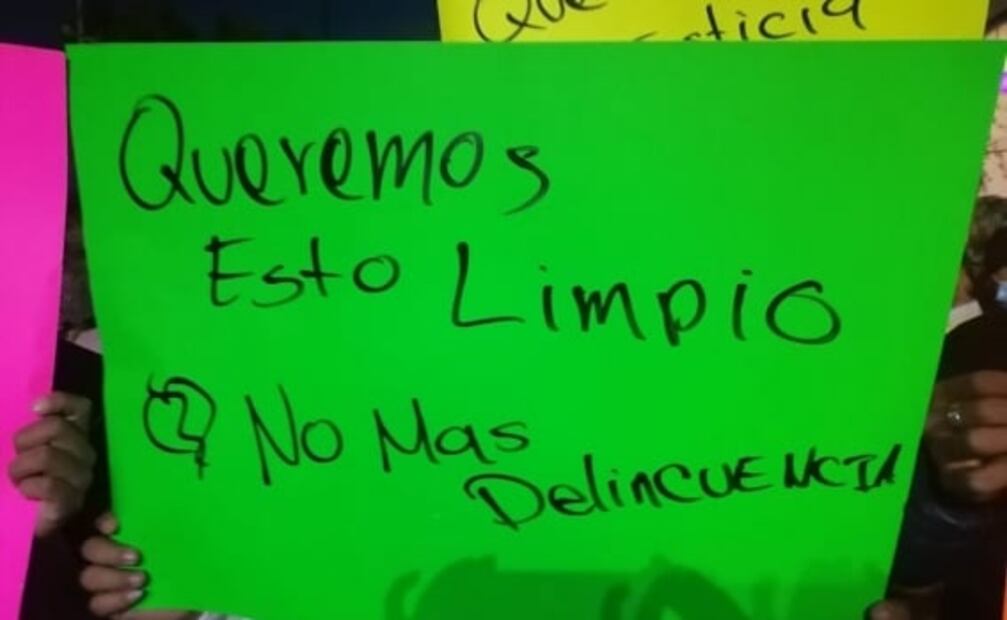 Que
sticia
Queremos
Esto Limpio
No Mas
DelinCUENCIA